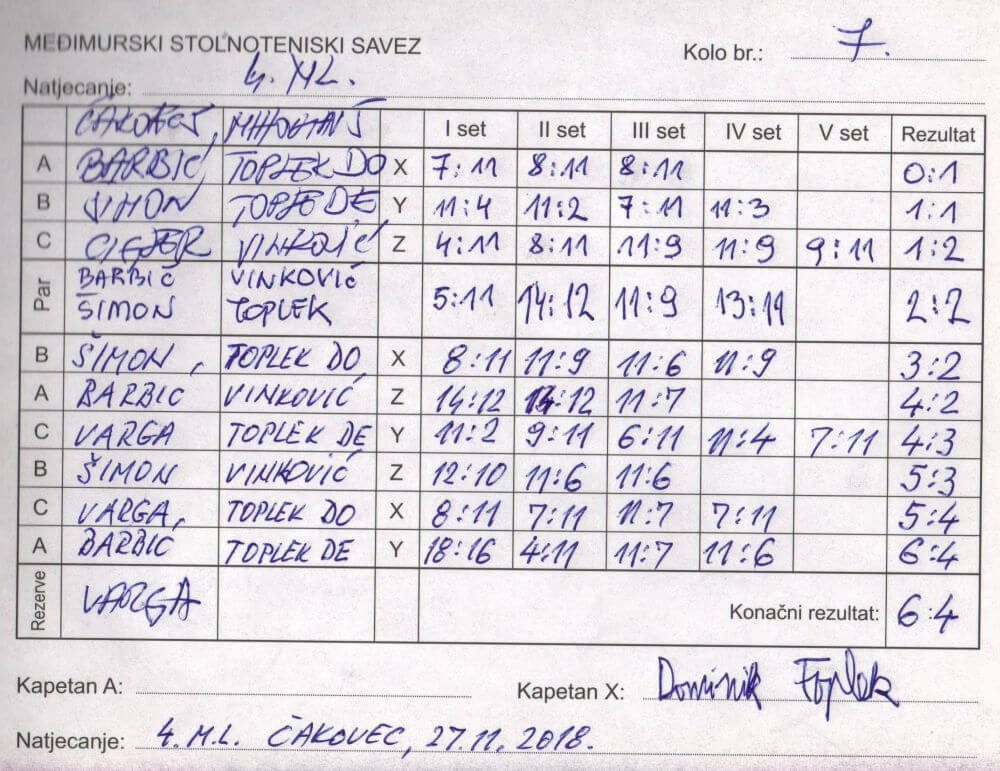 MEĐIMURSKI STOLNOTENISKI SAVEZ
Kolo br.: 7.
Natjecanje: 4. ML.
ČAKOVEC, MIHOVLJAN I set II set III set IV set V set Rezultat
A BARBIĆ, TOPLEK DO X 7:11 8:11 8:11 0:1
B ŠIMON TOPLEK DE Y 11:4 11:2 7:11 11:3 1:1
C VINKOVIĆ Z 4:11 8:11 11:9 11:9 9:11 1:2
Par BARBIĆ VINKOVIĆ 5:11 14:12 11:9 13:11 2:2
ŠIMON TOPLEK
B ŠIMON, TOPLEK DO X 8:11 11:9 11:6 11:9 3:2
A BARBIĆ VINKOVIĆ Z 14:12 14:12 11:7 4:2
C VARGA TOPLEK DE Y 11:2 9:11 6:11 11:4 7:11 4:3
B ŠIMON VINKOVIĆ Z 12:10 11:6 11:6 5:3
C VARGA, TOPLEK DO X 8:11 7:11 11:7 7:11 5:4
A BARBIĆ TOPLEK DE Y 18:16 4:11 11:7 11:6 6:4
Rezerve VARGA Konačni rezultat: 6:4
Kapetan A: Kapetan X: Dominik Toplek
Natjecanje: 4. M.L. ČAKOVEC, 27.11.2018.